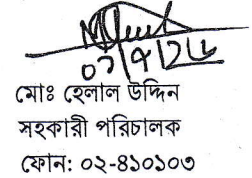 মোঃ হেলাল উদ্দিন
সহকারী পরিচালক
ফোন: ০২-৪১০১০৩